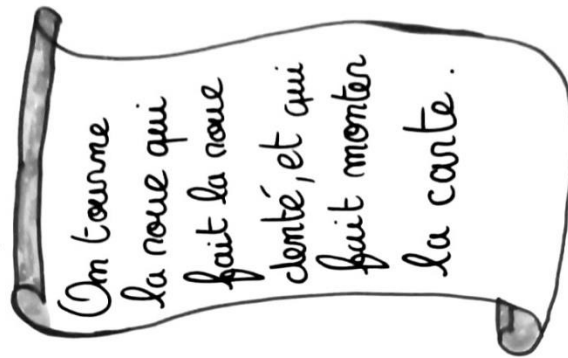 On tourne
la roue qui
fait la roue
denté, et qui
fait monter
la carte.